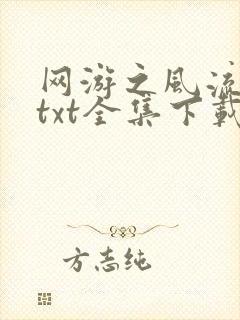 网游之风流
txt全集下载
方志纯